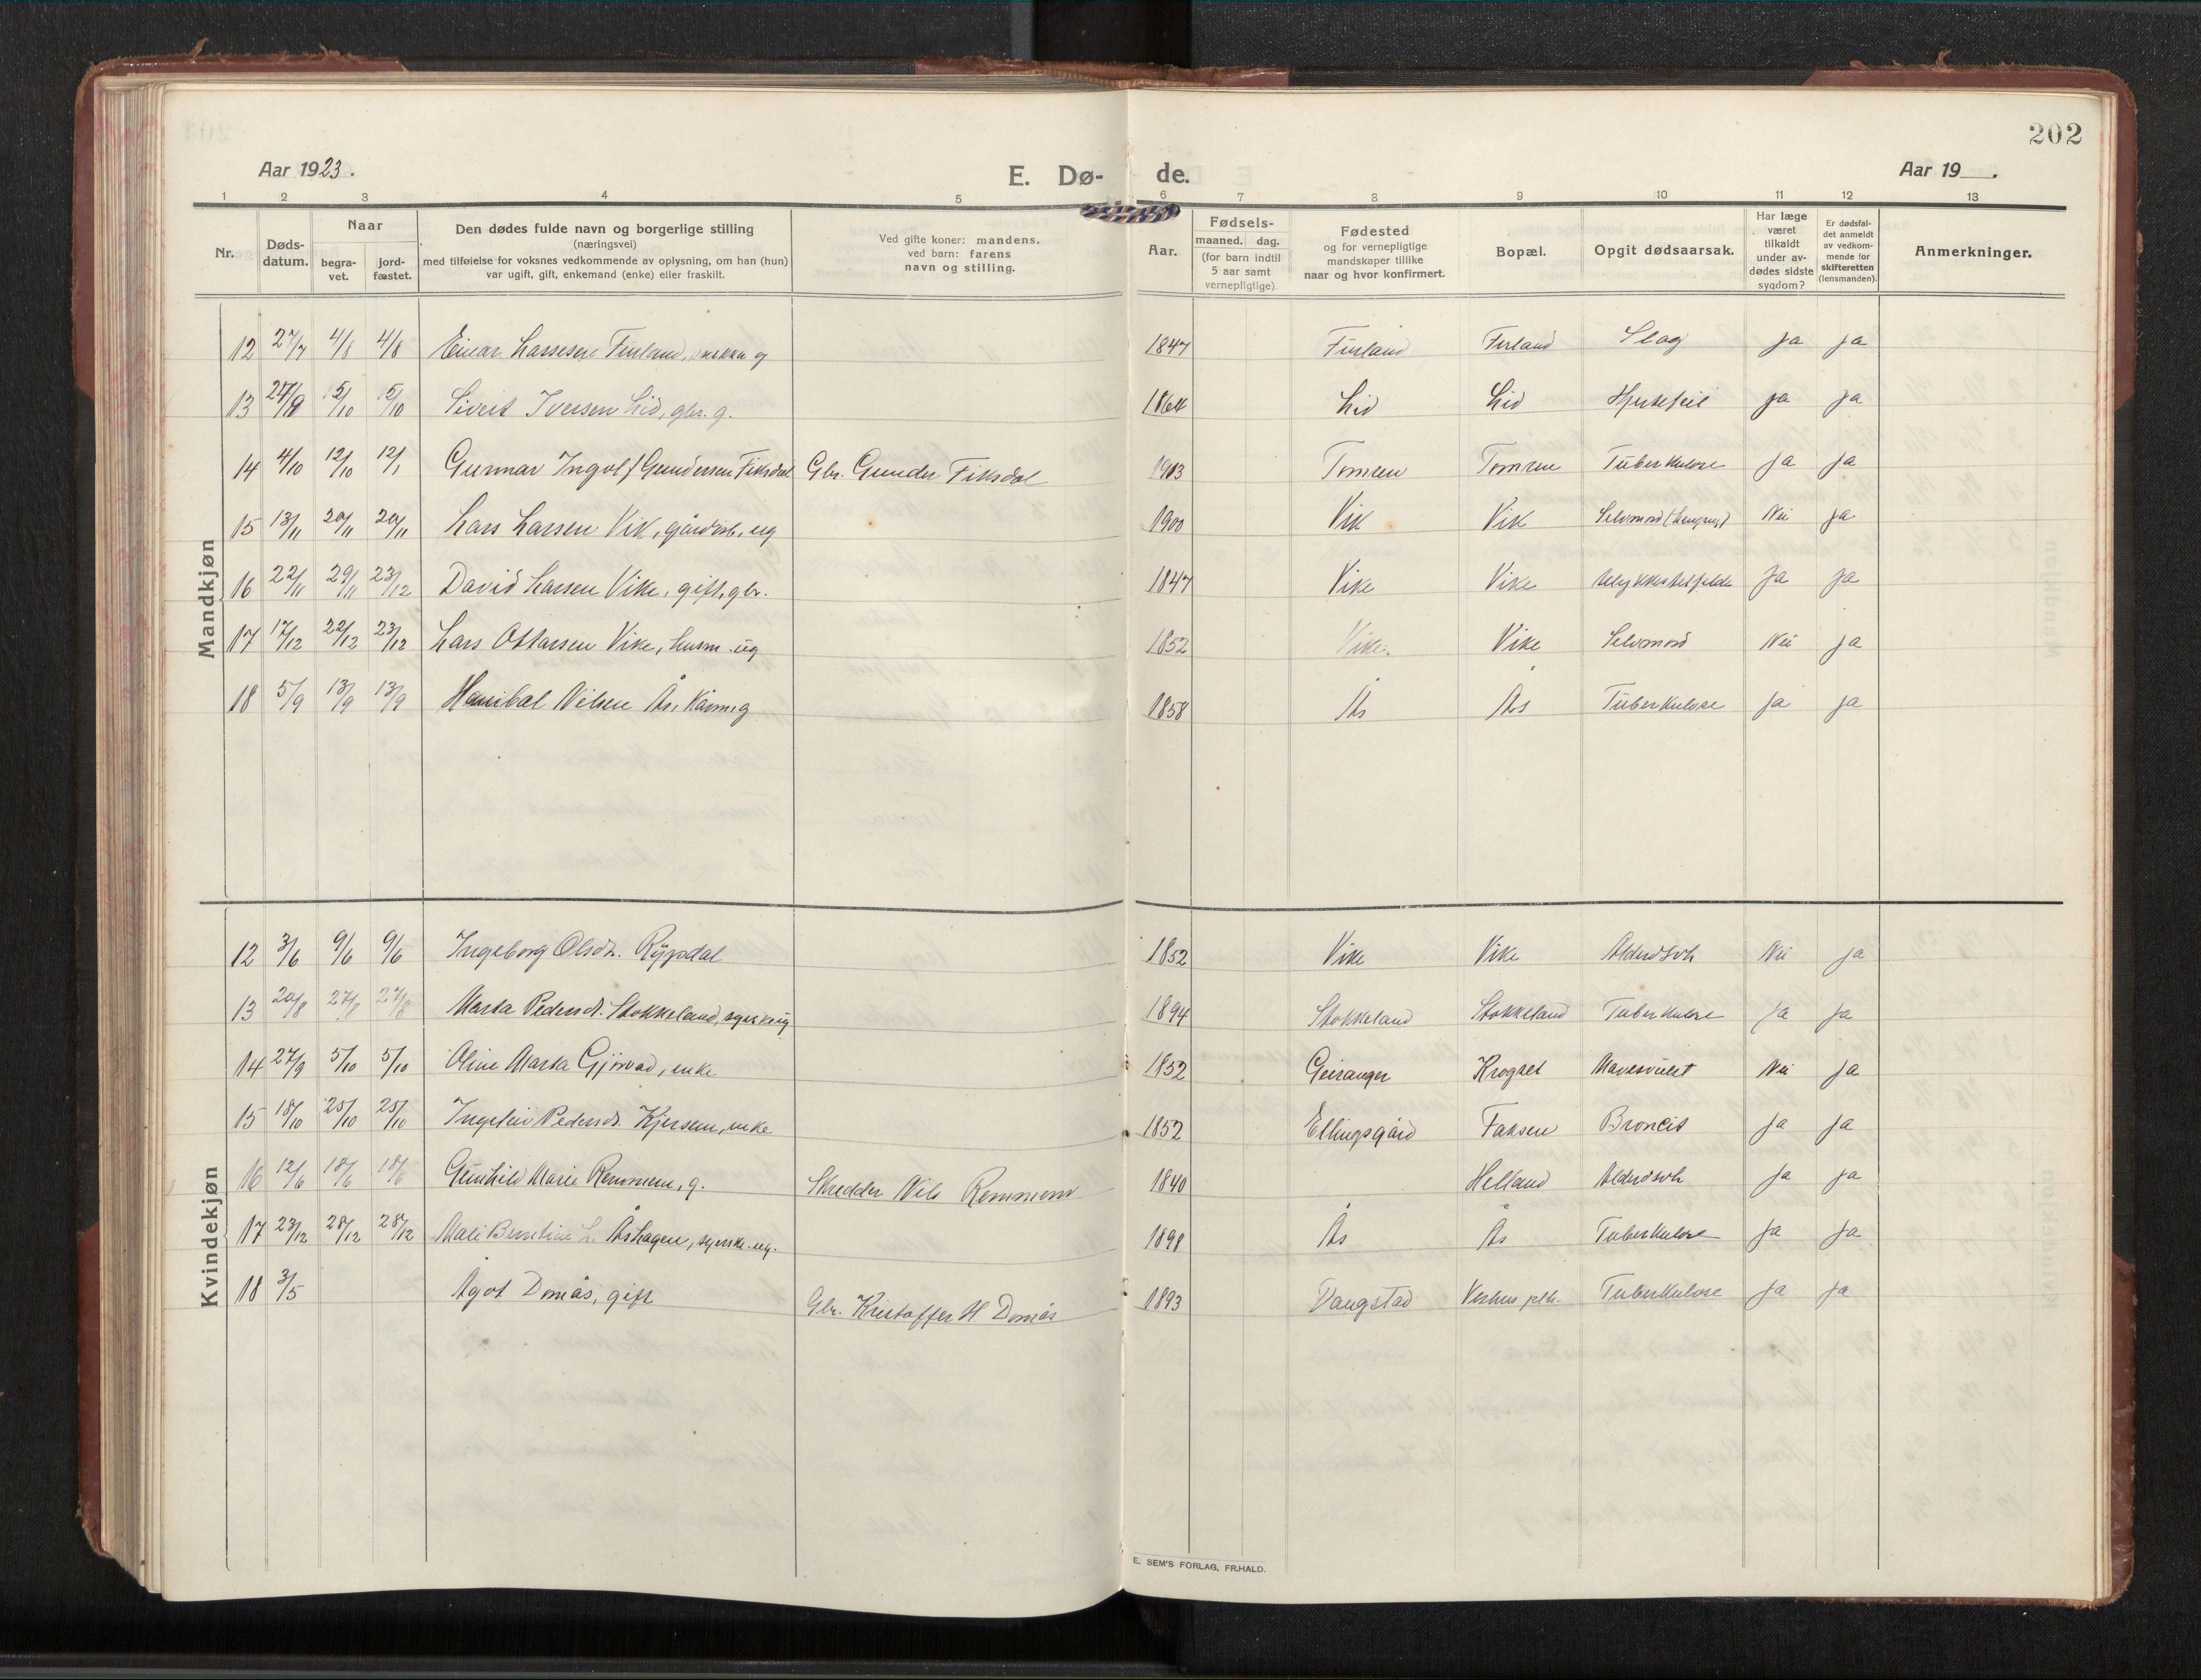 202
Aar 1923.
E. Dø-
de.
Aar 19 .
1 2 3 4 5 6 7 8 9 10 11 12 13
Nr.
Døds-
datum.
Naar
begra-
vet.
jord-
fæstet.
Den dødes fulde navn og borgerlige stilling
(næringsvei)
med tilføielse for voksnes vedkommende av oplysning, om han (hun)
var ugift, gift, enkemand (enke) eller fraskilt.
Ved gifte koner: mandens,
ved barn: farens
navn og stilling.
Aar.
Fødsels-
maaned. dag.
(for barn indtil
5 aar samt
vernepligtige).
Fødested
og for vernepligtige
mandskaper tillike
naar og hvor konfirmert.
Bopæl.
Opgit dødsaarsak.
Har læge
været
tilkaldt
under av-
dødes sidste
sygdom?
Er dødsfal-
det anmeldt
av vedkom-
mende for
skifteretten
(lensmanden).
Anmerkninger.
Mandkjøn
12 27/7 4/8 4/8 Einar Lassesen Furland, g 1847 Furland Furland Slag ja ja
13 27/9 5/10 5/10 Sivert Iversen Lid, gbr. g. 1864 Lid Lid Hjertefeil ja ja
14 4/10 12/10 12/1 Gunnar Ingolf Gundersen Fiksdal Gbr. Gunder Fiksdal 1903 Tomren Tomren Tuberkulose ja ja
15 13/11 20/11 20/11 Lars Larsen Vik, gårdarb, ug 1900 Vik Vik Selvmord Nei ja
16 22/11 29/11 23/12 David Larsen Vike, gift, gbr. 1847 Vike Vike Ulykkestilfelde ja ja
17 17/12 22/12 23/12 Lars Ottarsen Vike, husm. ug 1852 Vike Vike Selvmord Nei ja
18 5/9 13/9 13/9 Hanibal Nilsen Ås, g 1858 Ås Ås Tuberkulose ja ja
Kvindekjøn
12 3/6 9/6 9/6 Ingeborg Olsdtr. Rypdal 1852 Vike Vike Alderdsvk Nei ja
13 20/8 27/8 27/8 Marta Pedersdt. Stokkeland, ug 1894 Stokkeland Stokkeland Tuberkulose ja ja
14 27/9 5/10 5/10 Oline Marta Gjørvad, enke 1852 Geiranger Krogset Mavesvulst Nei ja
15 18/10 25/10 25/10 Ingeleiv Pedersdt. Kjersem, enke 1852 Ellingsgård Faksen Broncit ja ja
16 12/6 18/6 18/6 Gunhild Marie Remmem, g. Skredder Nils Remmem 1840 Helland Alderdsvk ja ja
17 23/12 28/12 28/12 Mali Berntine L. Åshagen, syerske. ug. 1898 Ås Ås Tuberkulose ja ja
18 3/5 Agot Domås, gift Gbr. Kristoffer H. Domås 1893 Daugstad Veshus plh. Tuberkulose ja ja
E. SEM'S FORLAG, FR.HALD.